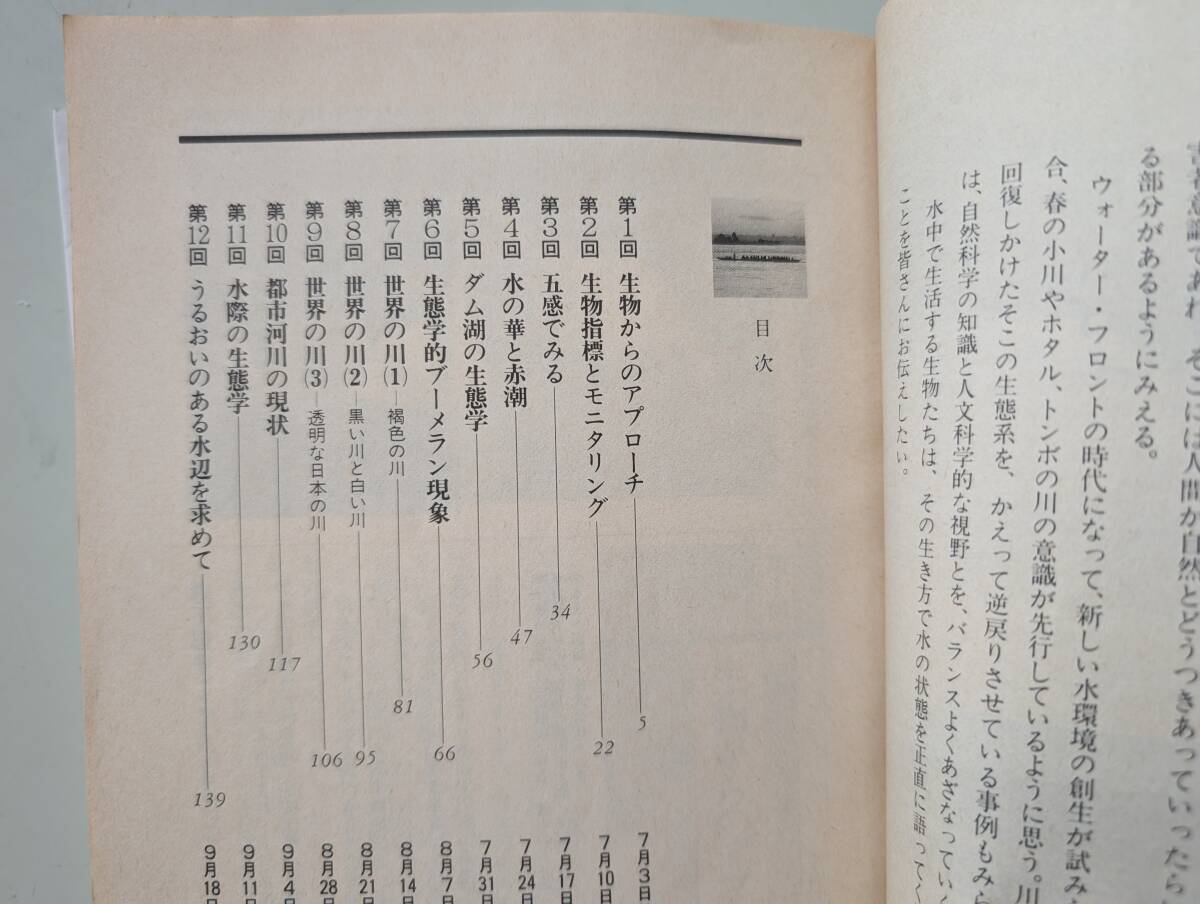 言者意識であれ そこには人間が自然とどうつきあっていったら
る部分があるようにみえる。
ウォーター・フロントの時代になって、新しい水環境の創生が試み
合、春の小川やホタル、トンボの川の意識が先行しているように思う。川
回復しかけたそこの生態系を、かえって逆戻りさせている事例もみら
は、自然科学の知識と人文科学的な視野とを、バランスよくあざなっていく
水中で生活する生物たちは、その生き方で水の状態を正直に語ってく
ことを皆さんにお伝えしたい。
目次
第1回 生物からのアプローチ 5 7月3日
第2回 生物指標とモニタリング 22 7月10日
第3回 五感でみる 34 7月17日
第4回 水の華と赤潮 47 7月24日
第5回 ダム湖の生態学 56 7月31日
第6回 生態学的ブーメラン現象 66 8月7日
第7回 世界の川(1)―褐色の川 81 8月14日
第8回 世界の川(2)―黒い川と白い川 95 8月21日
第9回 世界の川(3)―透明な日本の川 106 8月28日
第10回 都市河川の現状 117 9月4日
第11回 水際の生態学 130 9月11日
第12回 うるおいのある水辺を求めて 139 9月18日